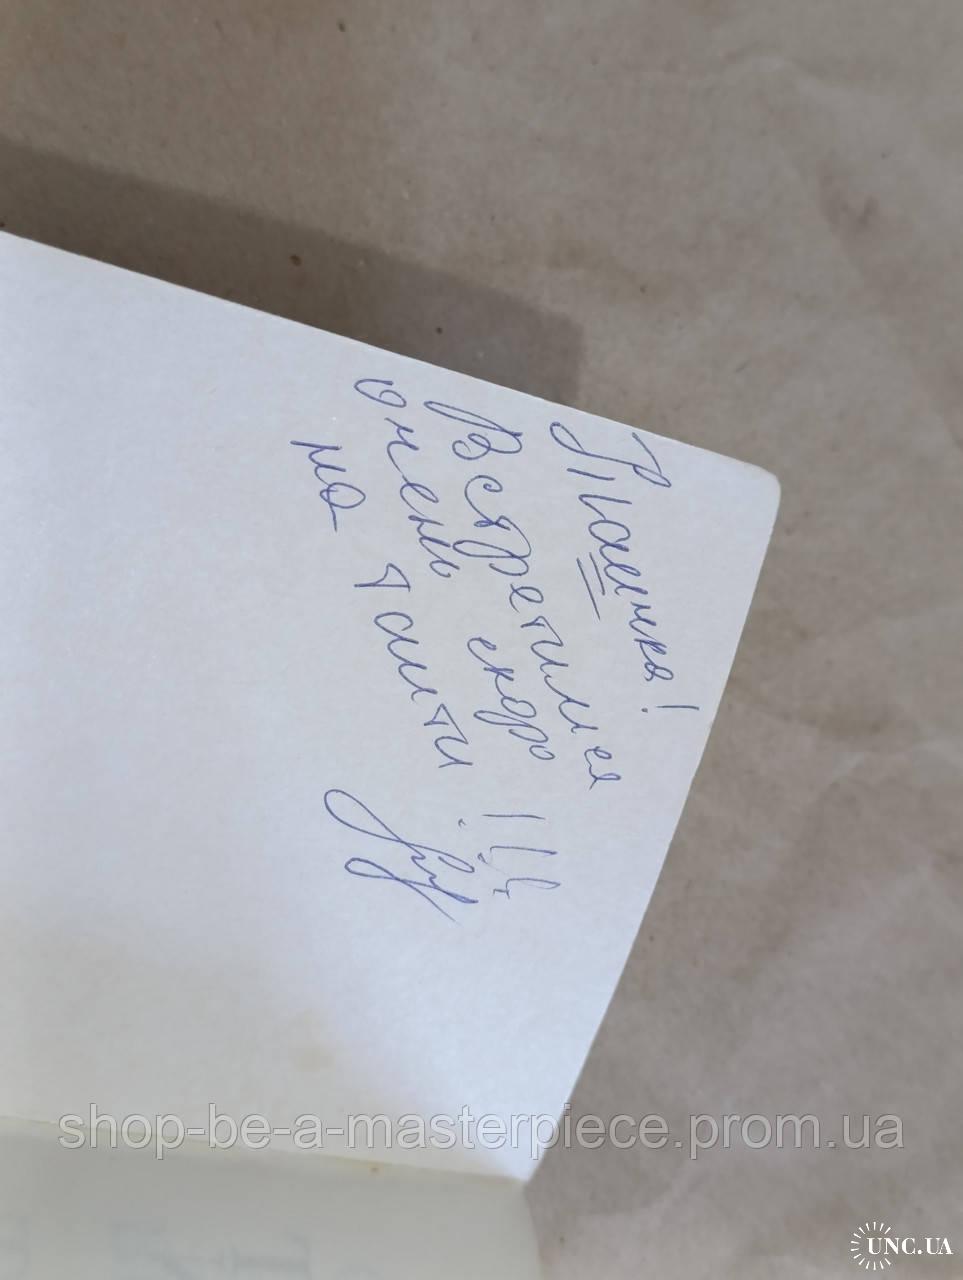 Встретимся
очень скоро
на Таити!!!
shop-be-a-masterpiece.prom.ua
UNC.UA